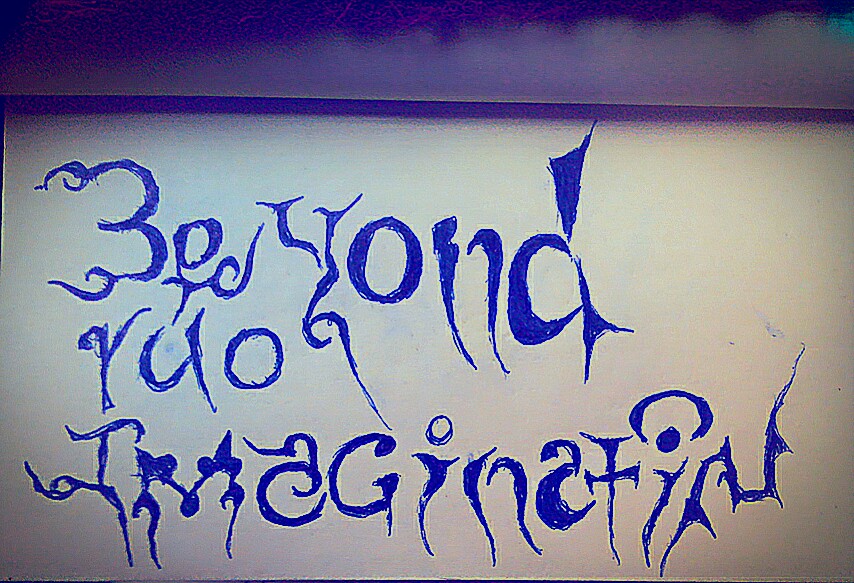 Beyond
ruo
Imagination